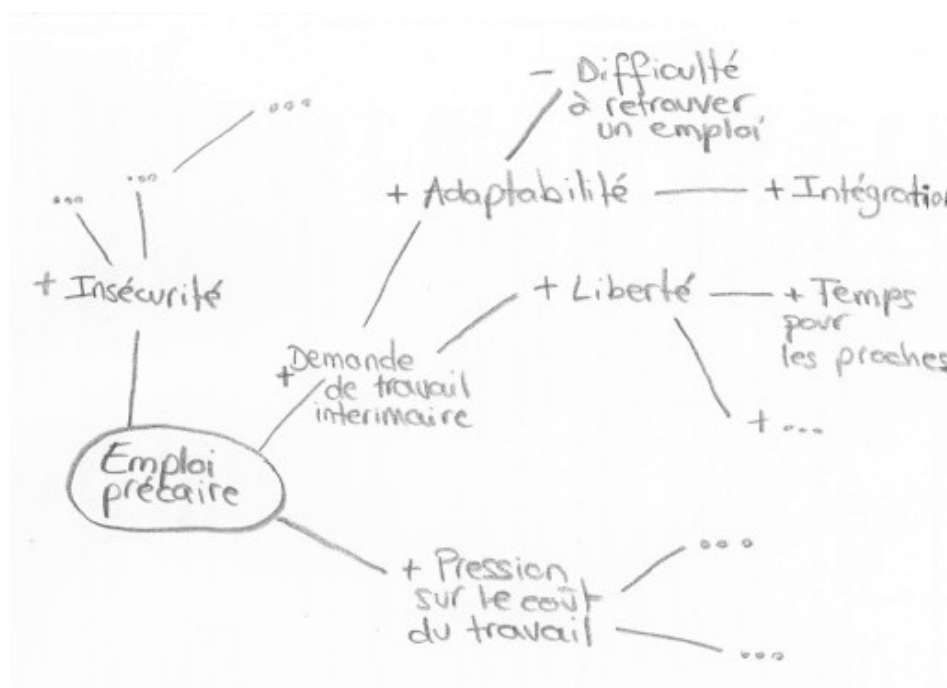 - Difficulté
à retrouver
un emploi
...
... ...
+ Adaptabilité
+ Intégration
+ Insécurité
+ Liberté
+ Temps
pour
les proches
+ Demande
de travail
interimaire
+ ...
Emploi
précaire
+ Pression
sur le coût
du travail
...
...